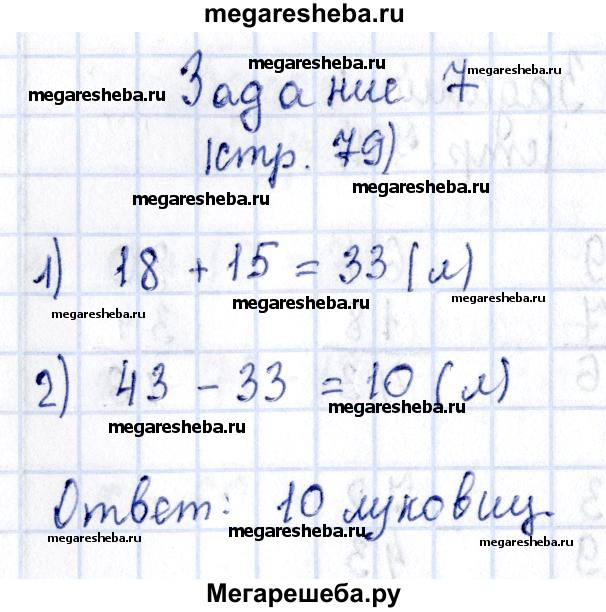 megaresheba.ru
Задание 7
megaresheba.ru
megaresheba.ru
(стр. 79)
megaresheba.ru
megaresheba.ru
1) 18 + 15 = 33 (л)
megaresheba.ru
megaresheba.ru
megaresheba.ru
2) 43 - 33 = 10 (л)
megaresheba.ru
megaresheba.ru
Ответ: 10 луковиц.
megaresheba.ru
megaresheba.ru
Мегарешеба.ру